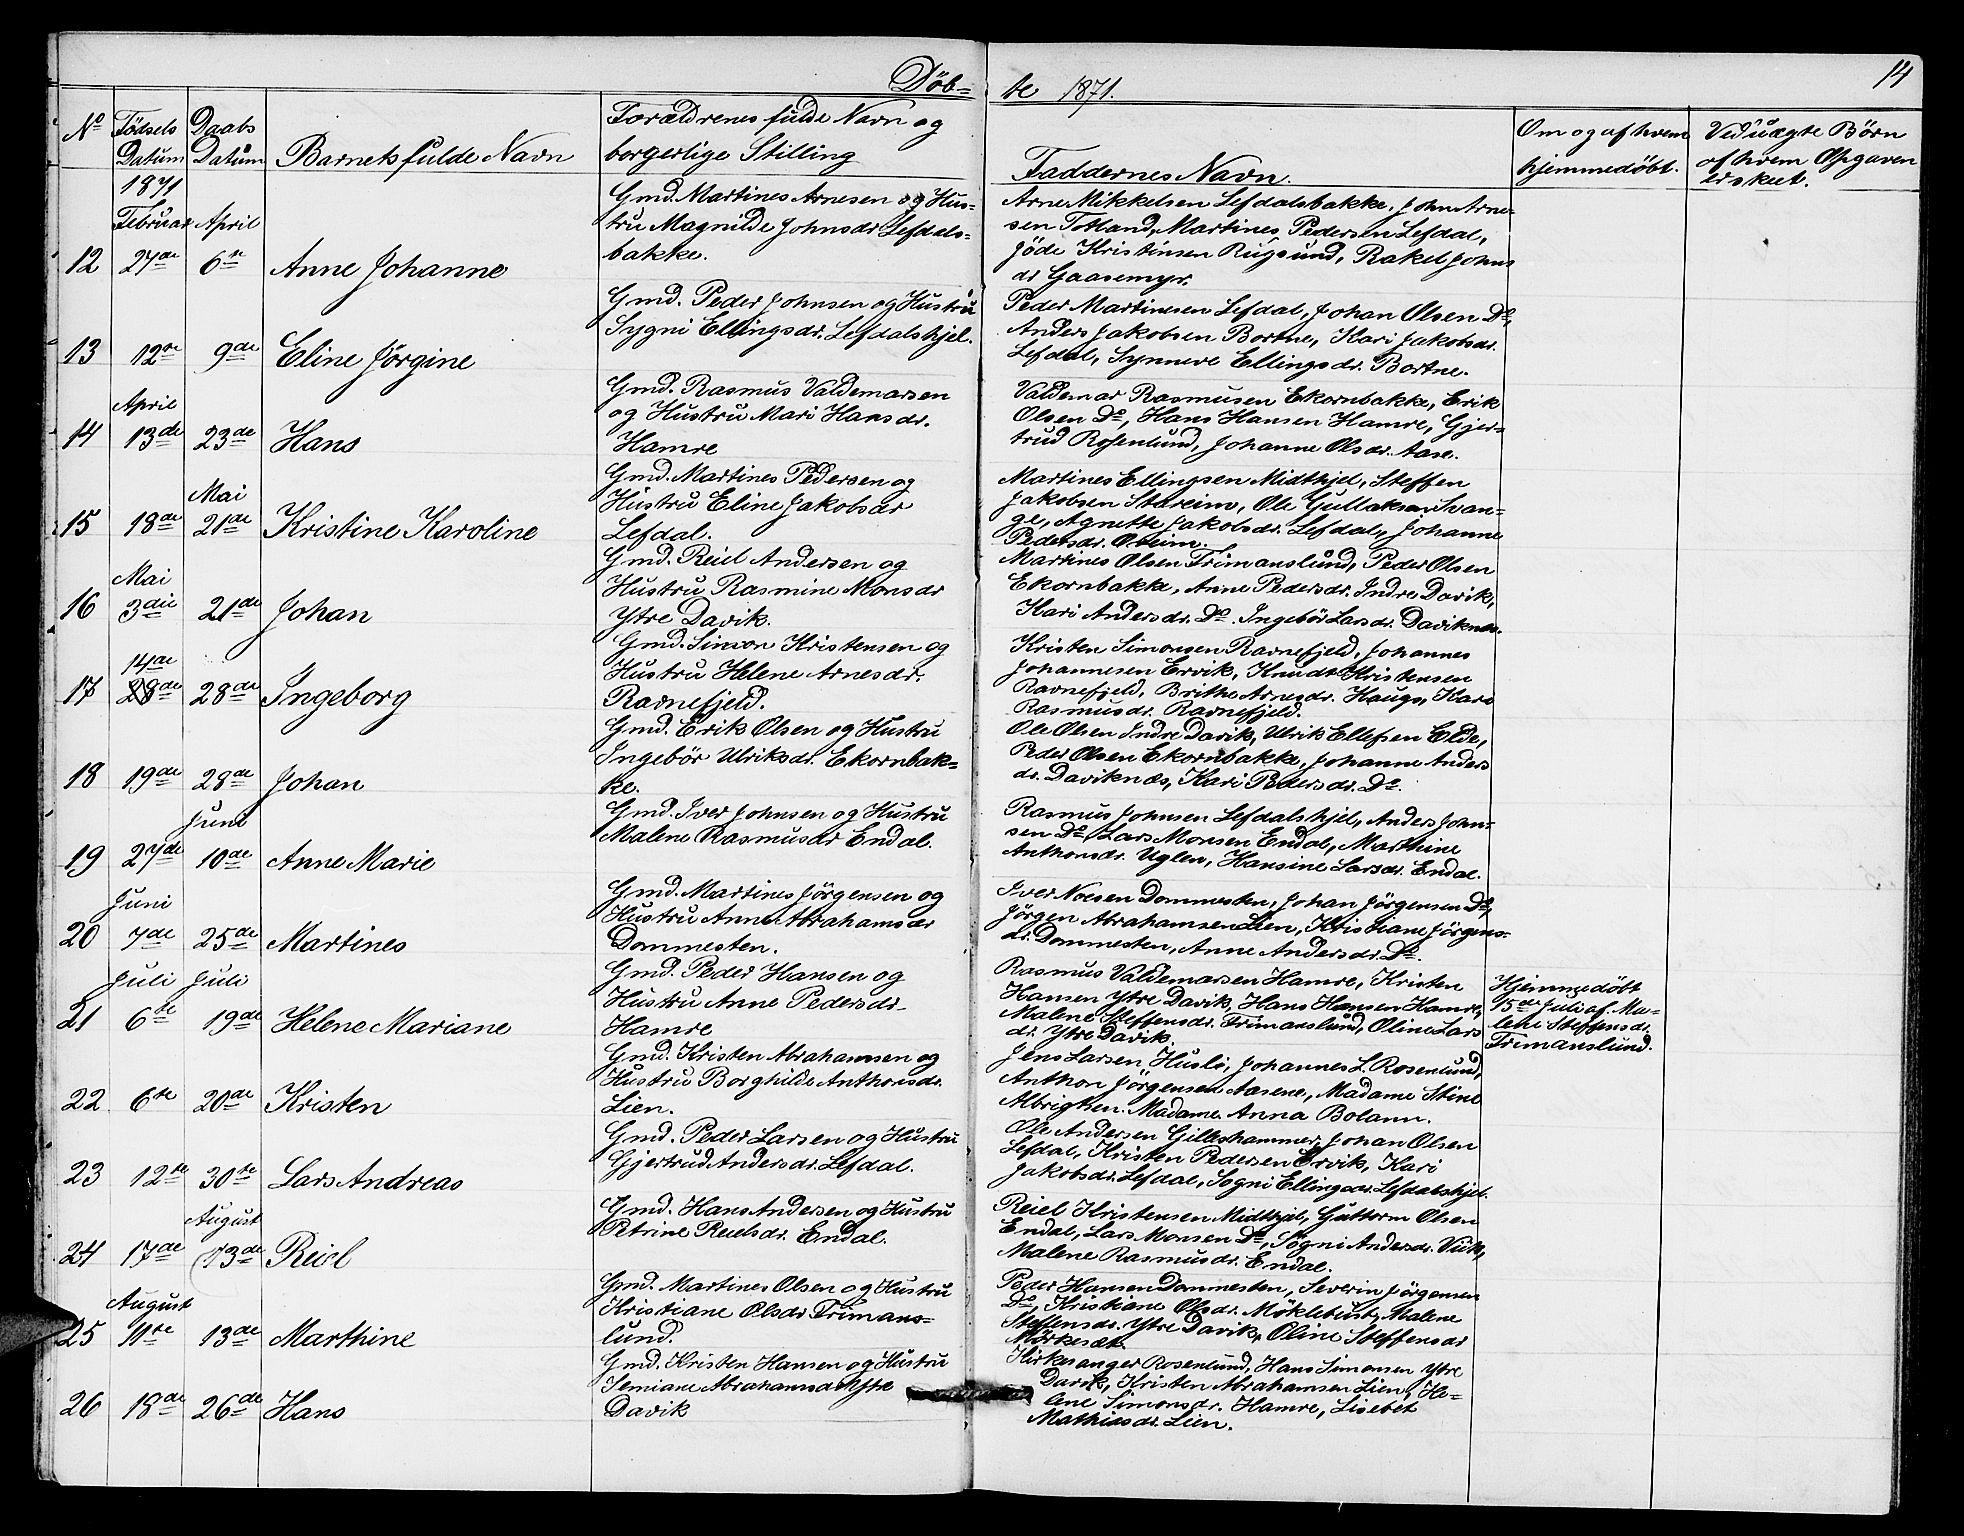 Döb-
te 1871.
14
No
Fødsels Datum
Daabs Datum
Barnets fulde Navn
Forældrenes fulde Navn og
borgerlige Stilling
Faddernes Navn.
Om og af hvem
hjemmedøbt.
Ved uægte Børn
af hvem Opgaven
er skeet.
1871
Februar April
12 27de 6te Anne Johanne
Gmd. Martines Arnesen og Hus-
tru Magnilde Johnsdr Lefdals-
bakke.
Arne Mikkelsen Lefdalsbakke, John Arne-
sen Totland, Martines Pedersen Lefdal,
Jöde Kristinsen Rugsund, Rakel Johns
dr Gaasemyr.
13 12te 9de Eline Jörgine
Gmd. Peder Johnsen og Hustru
Sygni Ellingsdr. Lefdalshjel.
Peder Martinesen Lefdal, Johan Olsen Do,
Anders Jakobsen Bortne, Kari Jakobsdr.
Lefdal, Synneve Ellingsdr. Bortne.
April
14 13de 23de Hans
Gmd. Rasmus Valdemarsen
og Hustru Mari Hansdr.
Hamre
Valdemar Rasmusen Ekornbakke, Erik
Olsen Do, Hans Hansen Hamre, Gjer-
trud Rosenlund, Johanne Olsdr. Aase.
Mai
15 18de 21de Kristine Karoline
Gmd. Martines Pedersen og
Hustru Eline Jakobsdr
Lefdal.
Martines Ellingsen Midthjel, Steffen
Jakobsen Stareim, Ole Gullaksen Svan-
ge, Agnette Jakobsdr. Lefdal, Johanne
Pedersdr. Oreim.
Mai
16 3die 21de Johan
Gmd. Reiel Andersen og
Hustru Rasmine Monsdr
Ytre Davik.
Martines Olsen Frimanslund, Peder Olsen
Ekornbakke, Anne Pedersdr. Indre Davik,
Kari Andersdr. Do. Ingebör Larsdr. Daviknes.
14de
17 28de 28de Ingeborg
Gmd. Simon Kristensen og
Hustru Helene Arnesdr.
Ravnefjeld.
Kristen Simonsen Ravnefjeld, Johannes
Johannesen Ervik, Knudt Kristensen
Ravnefjeld, Brithe Arnesdr. Hauge, Kari
Rasmusdr. Ravnefjeld.
18 19de 28de Johan
Gmd. Erik Olsen og Hustru
Ingebör Ulriksdr. Ekornbak-
ke.
Ole Olsen Indre Davik, Ulrik Ellefsen Elde,
Peder Olsen Ekornbakke, Johanne Anders
dr. Daviknæs, Kari Pedersdr. Do.
Juni
19 27de 10de Anne Marie
Gmd. Iver Johnsen og Hustru
Malene Rasmusdr Endal.
Rasmus Johnsen Lefdalshjel, Anders John-
sen Do, Lars Monsen Endal, Marthine
Anthonsdr. Uglen, Hansine Larsdr. Endal.
Juni
20 7de 25de Martines
Gmd. Martines Jörgensen og
Hustru Anne Abrahamsdr
Dommesten.
Iver Noesen Dommesten, Johan Jörgensen Do,
Jörgen Abrahamsen Lien, Kristiane Jörgens-
dr. Dommesten, Anne Andersdr. Do.
Juli Juli
21 6te 19de Helene Mariane
Gmd. Peder Hansen og
Hustru Anne Pedersdr.
Hamre
Rasmus Valdemarsen Hamre, Kristen
Hansen Ytre Davik, Hans Hansen Hamre,
Malene Steffensdr. Frimanslund, Oline Lars
dr. Ytre Davik.
Hjemmedöbt
15de Juli af Ma-
lene Steffensdr.
Frimanslund.
22 6te 20de Kristen
Gmd. Kristen Abrahamsen og
Hustru Borghilde Anthonsdr.
Lien.
Jens Larsen Husli, Johannes L. Rosenlund,
Anthon Jörgensen Aasene, Madame Stine
Albrigtsen. Madame Anna Bolann.
23 12te 30te Lars Andreas
Gmd. Peder Larsen og Hustru
Gjertrud Andersdr. Lefdal.
Ole Andersen Gilleshammer, Johan Olsen
Lefdal, Kristen Pedersen Ervik, Kari
Jakobsdr. Lefdal, Sogni Ellingsdr. Lefdalshjel.
August
24 17de 13de Reiel
Gmd. Hans Andersen og Hustru
Petrine Reielsdr. Endal.
Reiel Kristensen Midthjel, Guttorm Olsen
Endal, Lars Monsen Do, Sogni Andersdr. Viik,
Malene Rasmusdr. Endal.
August
25 11te 13de Marthine
Gmd. Martines Olsen og Hustru
Kristiane Olsdr Frimans-
lund.
Peder Hansen Dommesten, Severin Jörgensen
Do, Kristiane Olsdr. Möklebust, Malene
Steffensdr. Ytre Davik, Oline Steffensdr
Mörkesæt.
26 18de 26de Hans
Gmd. Kristen Hansen og Hustru
Semiane Abrahamsdr Ytre
Davik
Kirkesanger Rosenlund, Hans Simonsen Ytre
Davik, Kristen Abrahamsen Lien, He-
lene Simonsdr. Hamre, Lisebet
Mathiasdr. Lien.